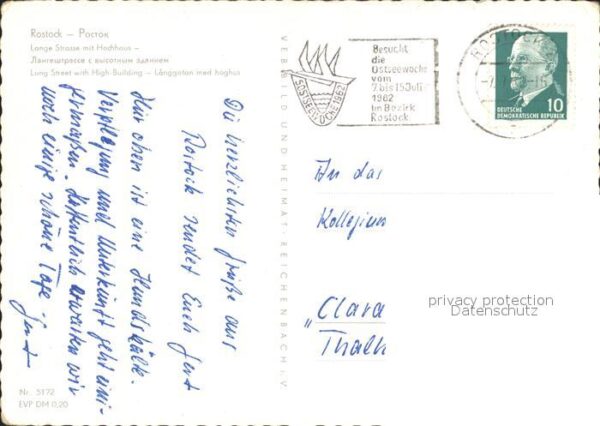 Rostock — Росток
Lange Strasse mit Hochhaus —
Лангештрассе с высотным зданием
Lung Street with High-Building — Långgatan med höghus
Die herzlichsten Grüße aus
Rostock sendet Euch Gert
Hier oben ist eine Hundskälte.
Verpflegung und Unterkunft geht eini-
germaßen. Hoffentlich erwarten wir
noch einige schöne Tage.
Gert
Nr. 5172
EVP DM 0,20
VEB BILD UND HEIMAT REICHENBACH i. V
SOSTSEEWOCHE 1962
Besucht
die
Ostseewoche
vom
7. bis 15. Juli
1962
im Bezirk
Rostock
ROSTOCK
DEUTSCHE
DEMOKRATISCHE REPUBLIK
10
An das
Kollegium
"Clara
Thalh
privacy protection
Datenschutz